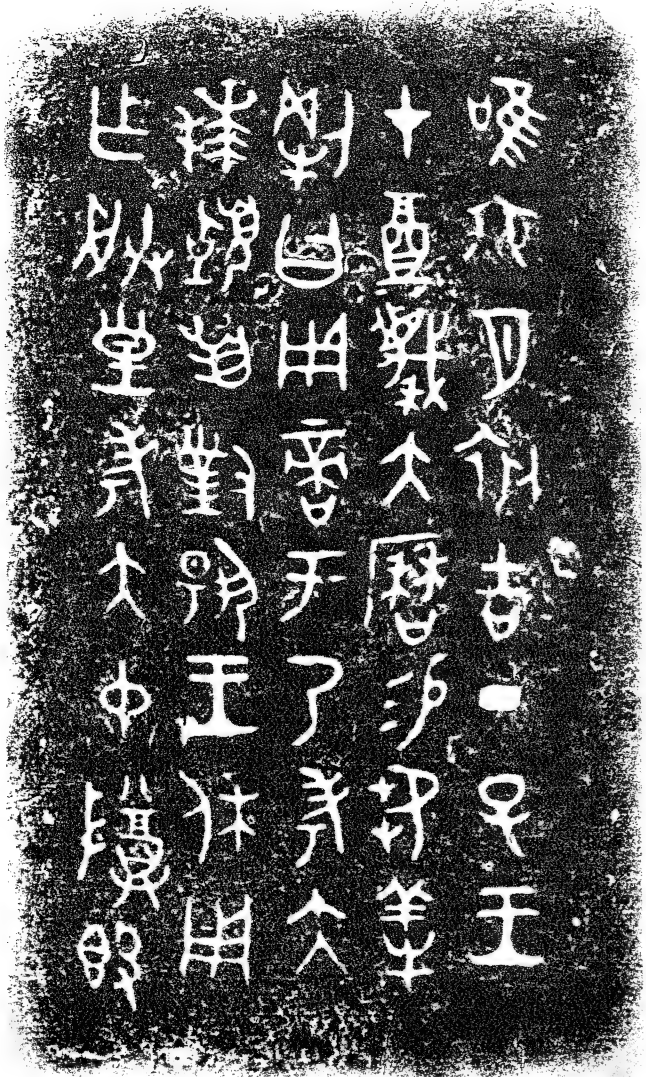 唯六月初吉丁子王
才奠蔑大曆易芻騂
犅曰用啻于乃考大
拜稽首對揚王休用
乍朕皇考大中尊簋